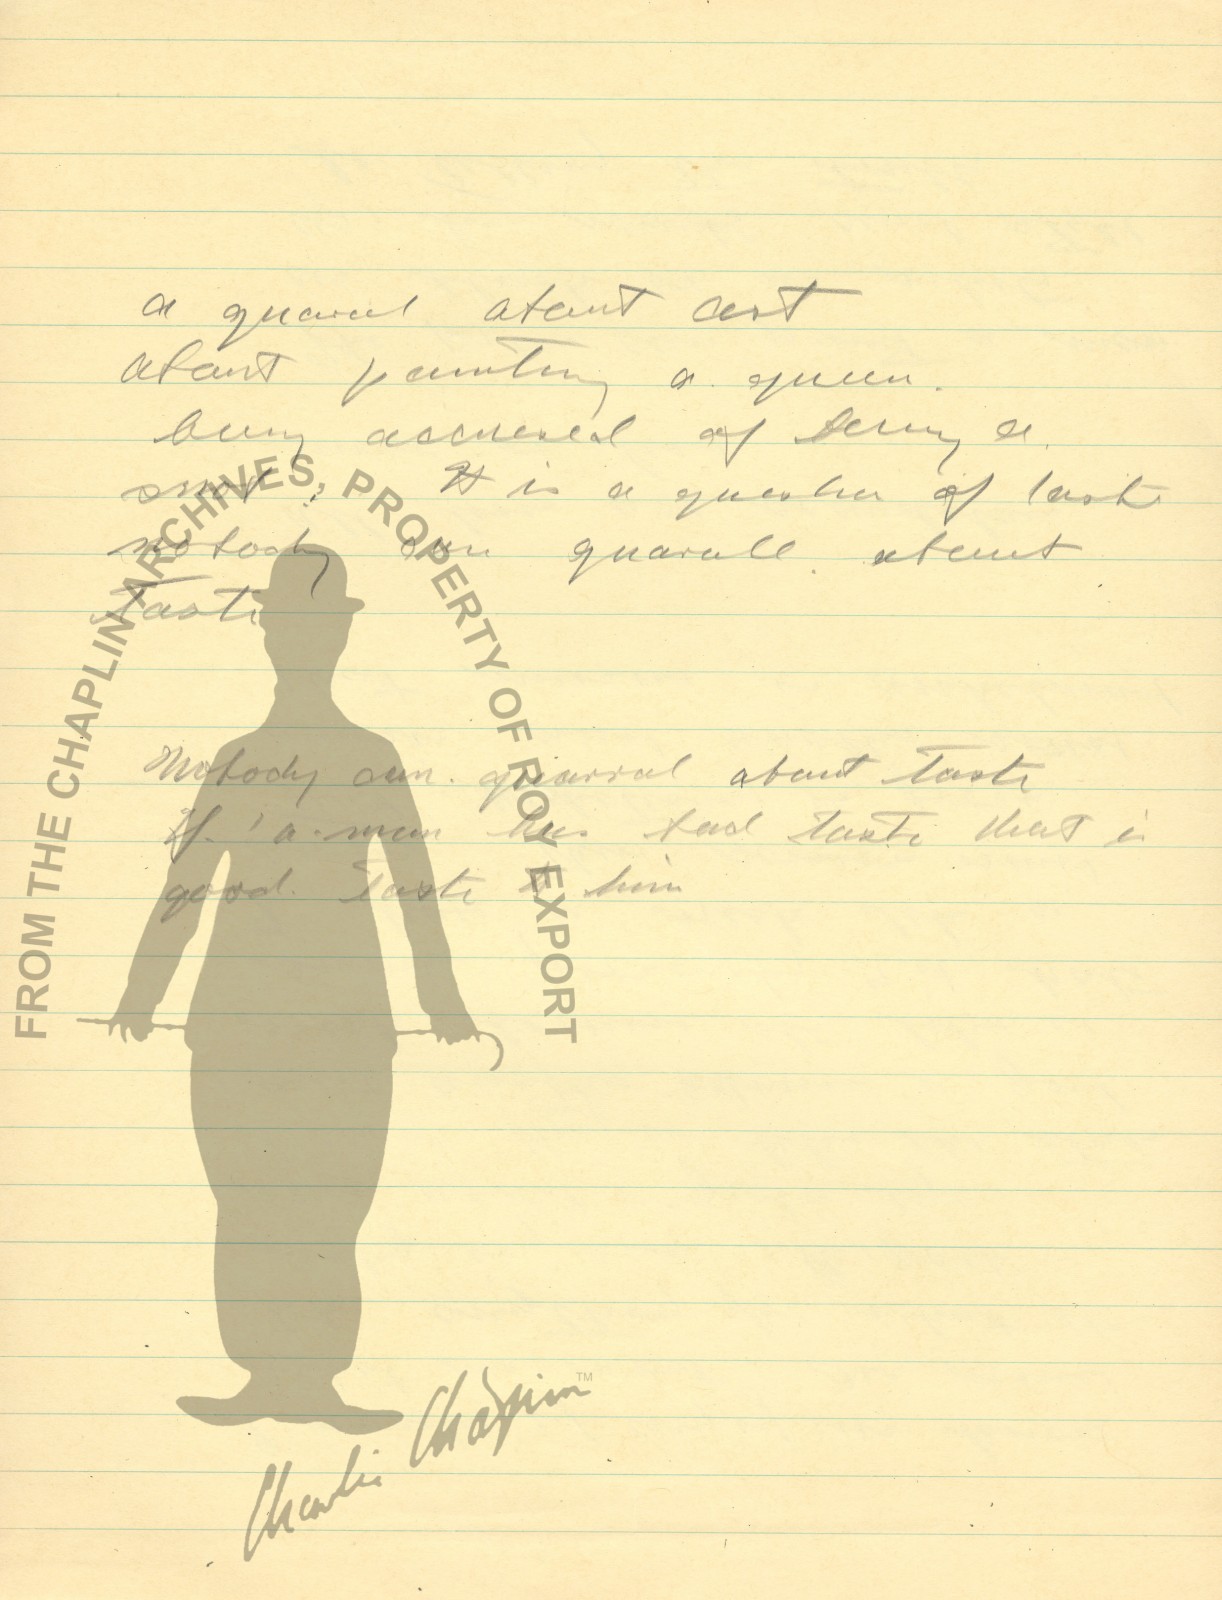 a quarrel about art
about painting a queen.
being accused of being a
snob. It is a question of taste
nobody can quarall about
taste
Nobody can. quarral about taste
If a man has bad taste that is
good. taste to him
FROM THE CHAPLIN ARCHIVES, PROPERTY OF ROY EXPORT
Charlie Chaplin™